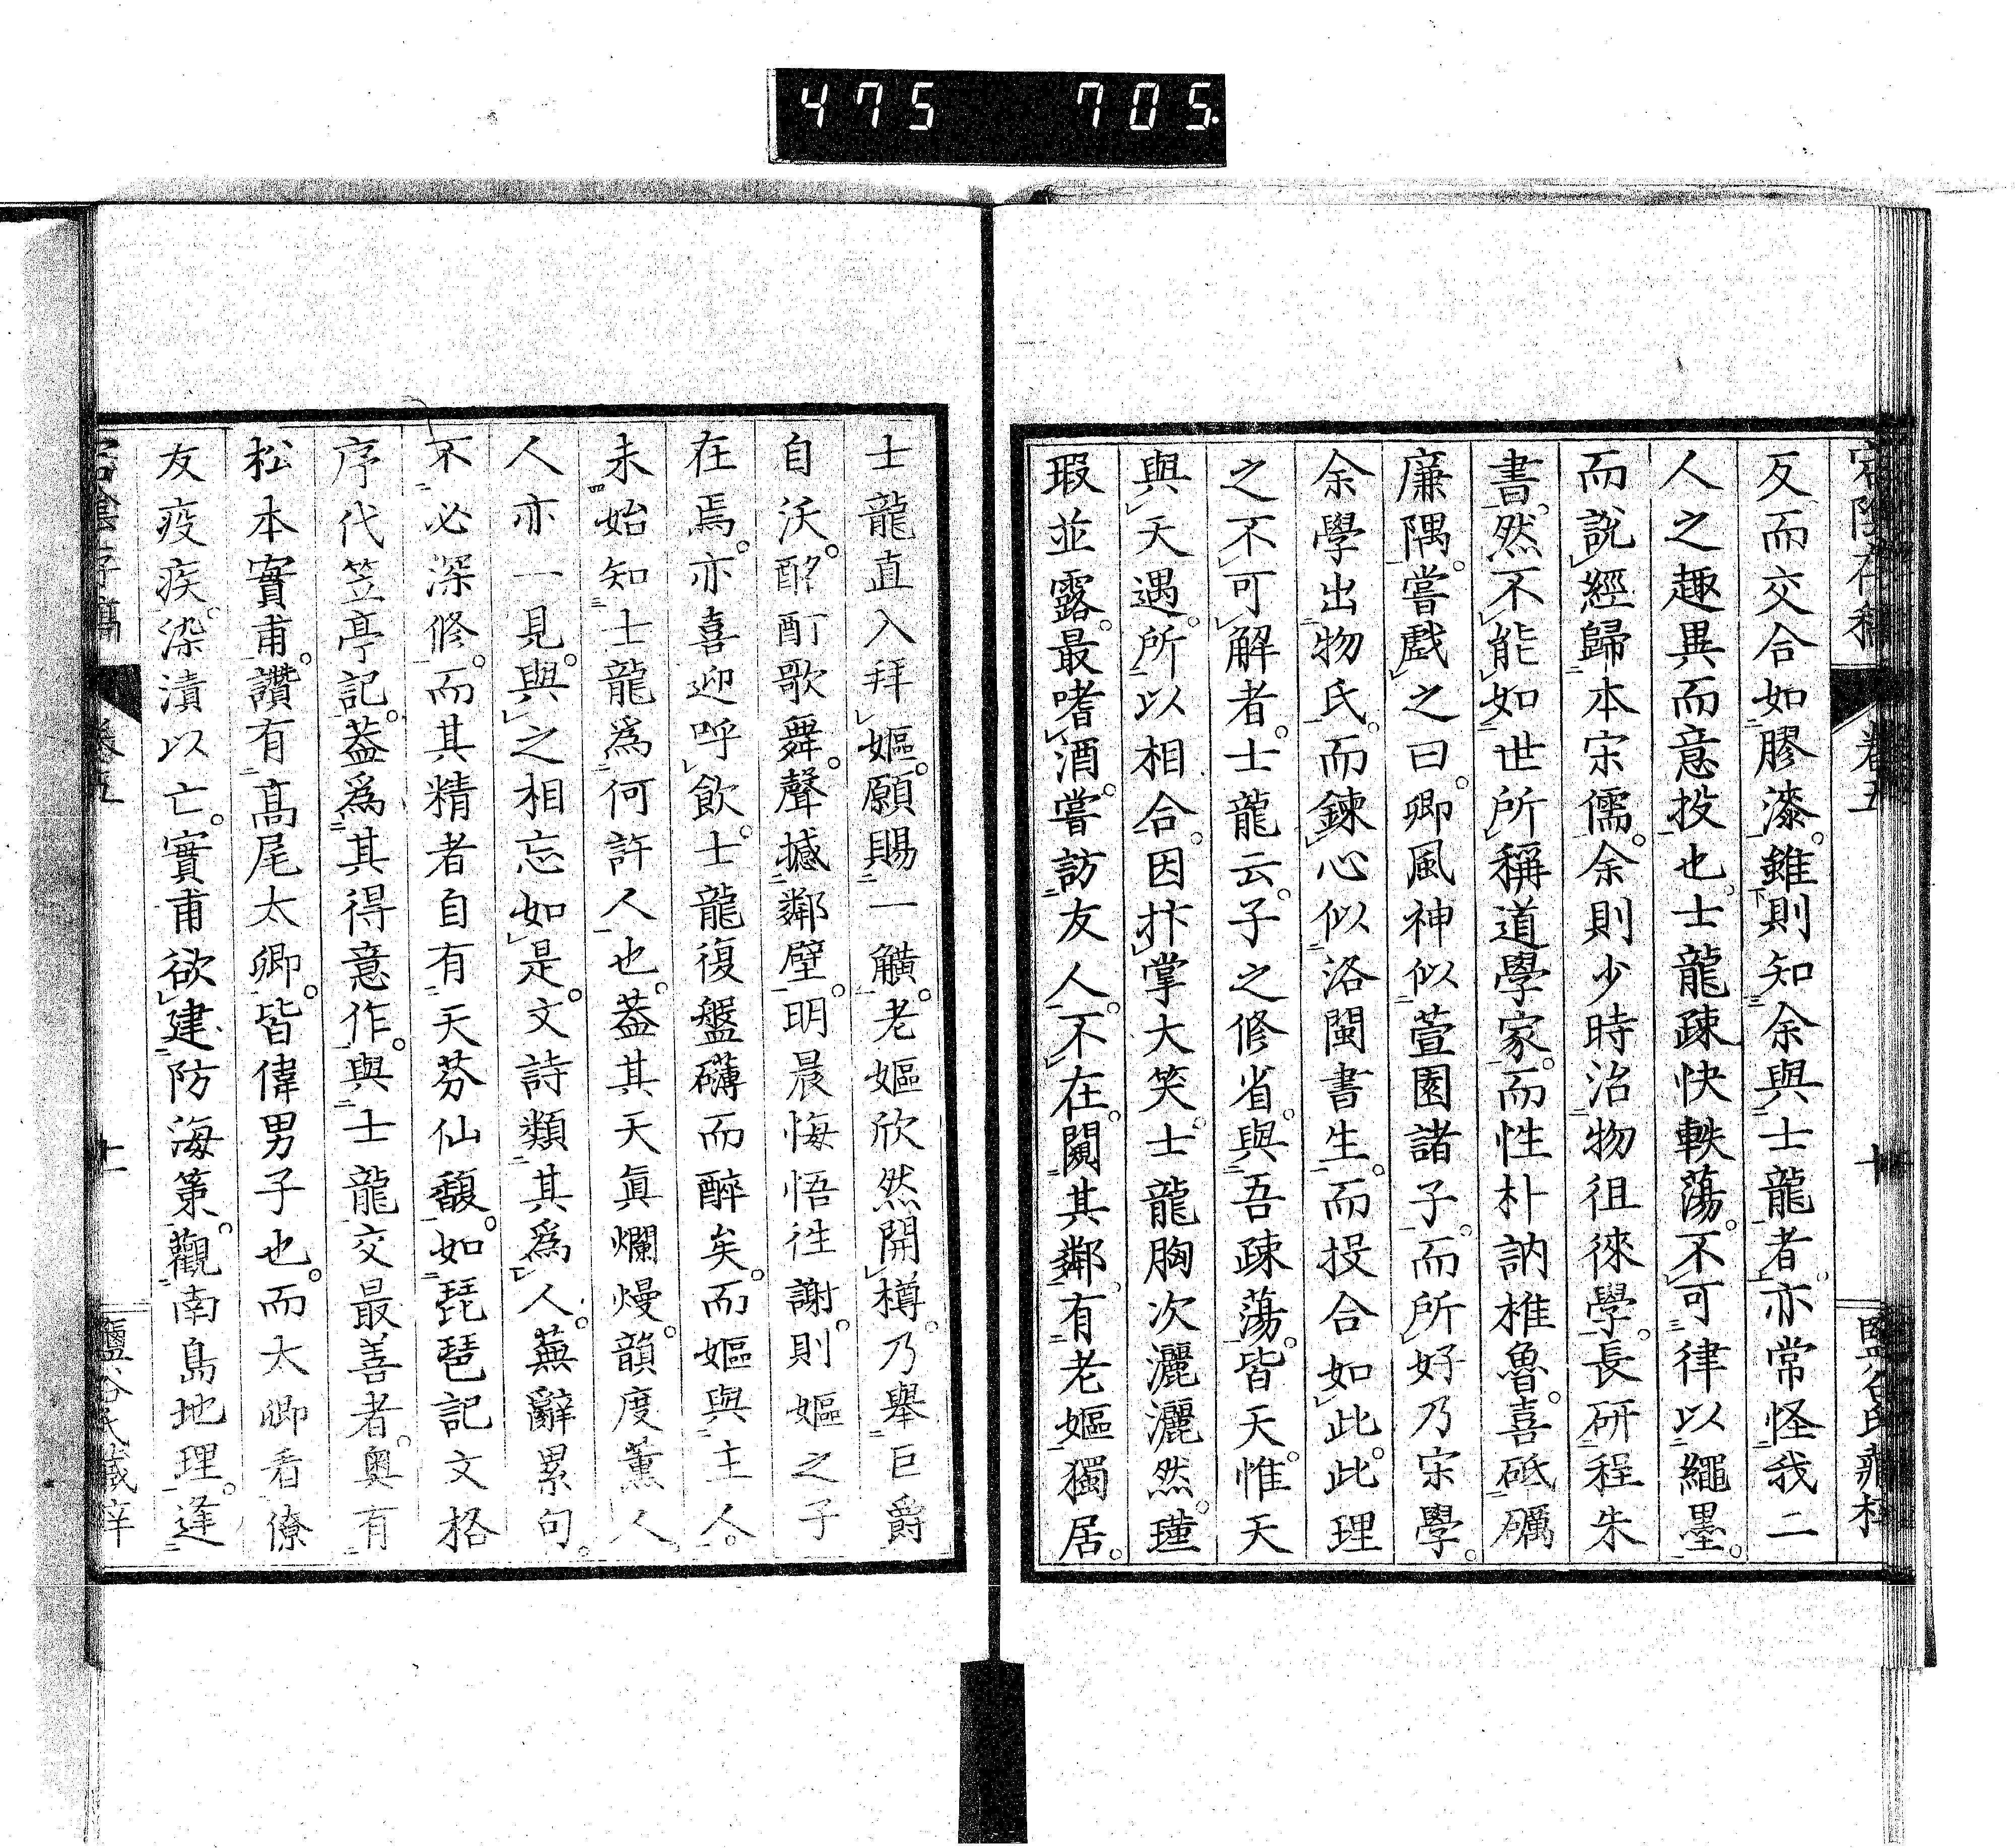 475 705
宕陰存稿 卷五 十
反而交合如膠漆。雖則知余與士龍者。亦常怪我二
人之趣異而意投也。士龍疎快軼蕩。不可律以繩墨。
而說經歸本宋儒。余則少時治物徂徠學。長研程朱
書。然不能如世所稱道學家。而性朴訥椎魯。喜砥礪
廉隅。嘗戲之曰。卿風神似萱園諸子。而所好乃宋學。
余學出物氏。而鍊心似洛閩書生。而投合如此。此理
之不可解者。士龍云。子之修省。與吾疎蕩。皆天。惟天
與天遇。所以相合。因抃掌大笑。士龍胸次灑灑然。瑾
瑕並露。最嗜酒。嘗訪友人。不在。闃其鄰。有老嫗獨居。
士龍直入拜嫗。願賜一觥。老嫗欣然開樽。乃舉巨爵
自沃。酩酊歌舞。聲撼鄰壁。明晨悔悟往謝。則嫗之子
在焉。亦喜迎呼飲。士龍復盤礴而醉矣。而嫗與主人。
未始知士龍爲何許人也。蓋其天眞爛熳。韻度薰人。
人亦一見。與之相忘如是。文詩類其爲人。蕪辭累句。
不必深修。而其精者自有天芬仙馥。如琵琶記文格
序代笠亭記。蓋爲其得意作。與士龍交最善者。奧有
松本實甫。讚有高尾太卿。皆偉男子也。而太卿看僚
友疫疾。染漬以亡。實甫欲建防海策。觀南島地理。逢
宕陰存稿 卷五 十一 鹽谷氏藏梓